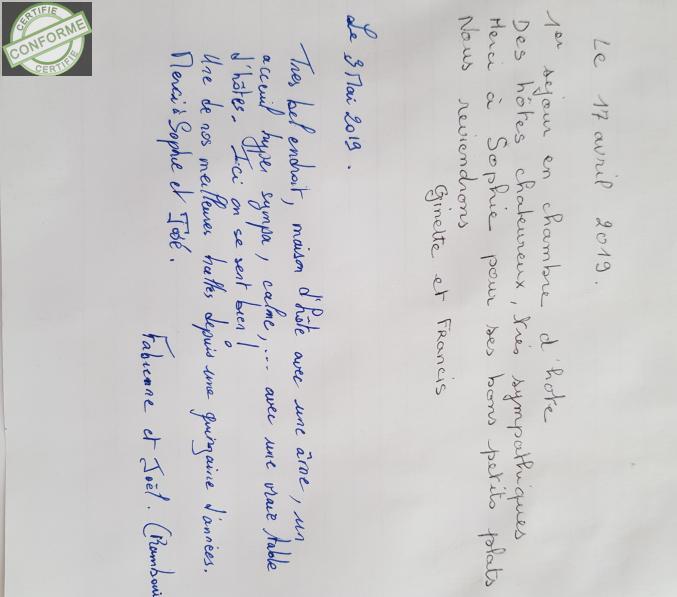 CERTIFIE
CONFORME
CERTIFIE
Le 17 avril 2019.
1er sejour en chambre d'hote
Des hôtes chaleureux, très sympathiques
Merci à Sophie pour ses bons petits plats
Nous reviendrons
Ginette et Francis
Le 3 Mai 2019.
Très bel endroit, maison d'hôte avec une âme, un
accueil hyper sympa, calme,... avec une vraie table
d'hôtes. Ici on se sent bien !
Une de nos meilleures haltes depuis une quinzaine d'années.
Merci à Sophie et José.
Fabienne et Joël. (Ramboui